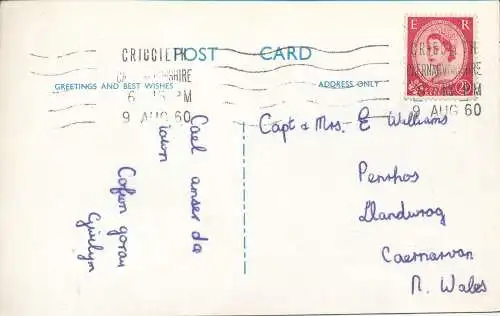 CRICCIETH
CAERNARVONSHIRE
6 15 PM
9 AUG 60
POST CARD
GREETINGS AND BEST WISHES
ADDRESS ONLY
E R
2½D
CAERNARVONSHIRE
PM
9 AUG 60
Cael amser da
iawn
Cofion gorau
Gwilym
Capt & Mrs. E Williams
Penrhos
Llandwrog
Caernarvon
N. Wales